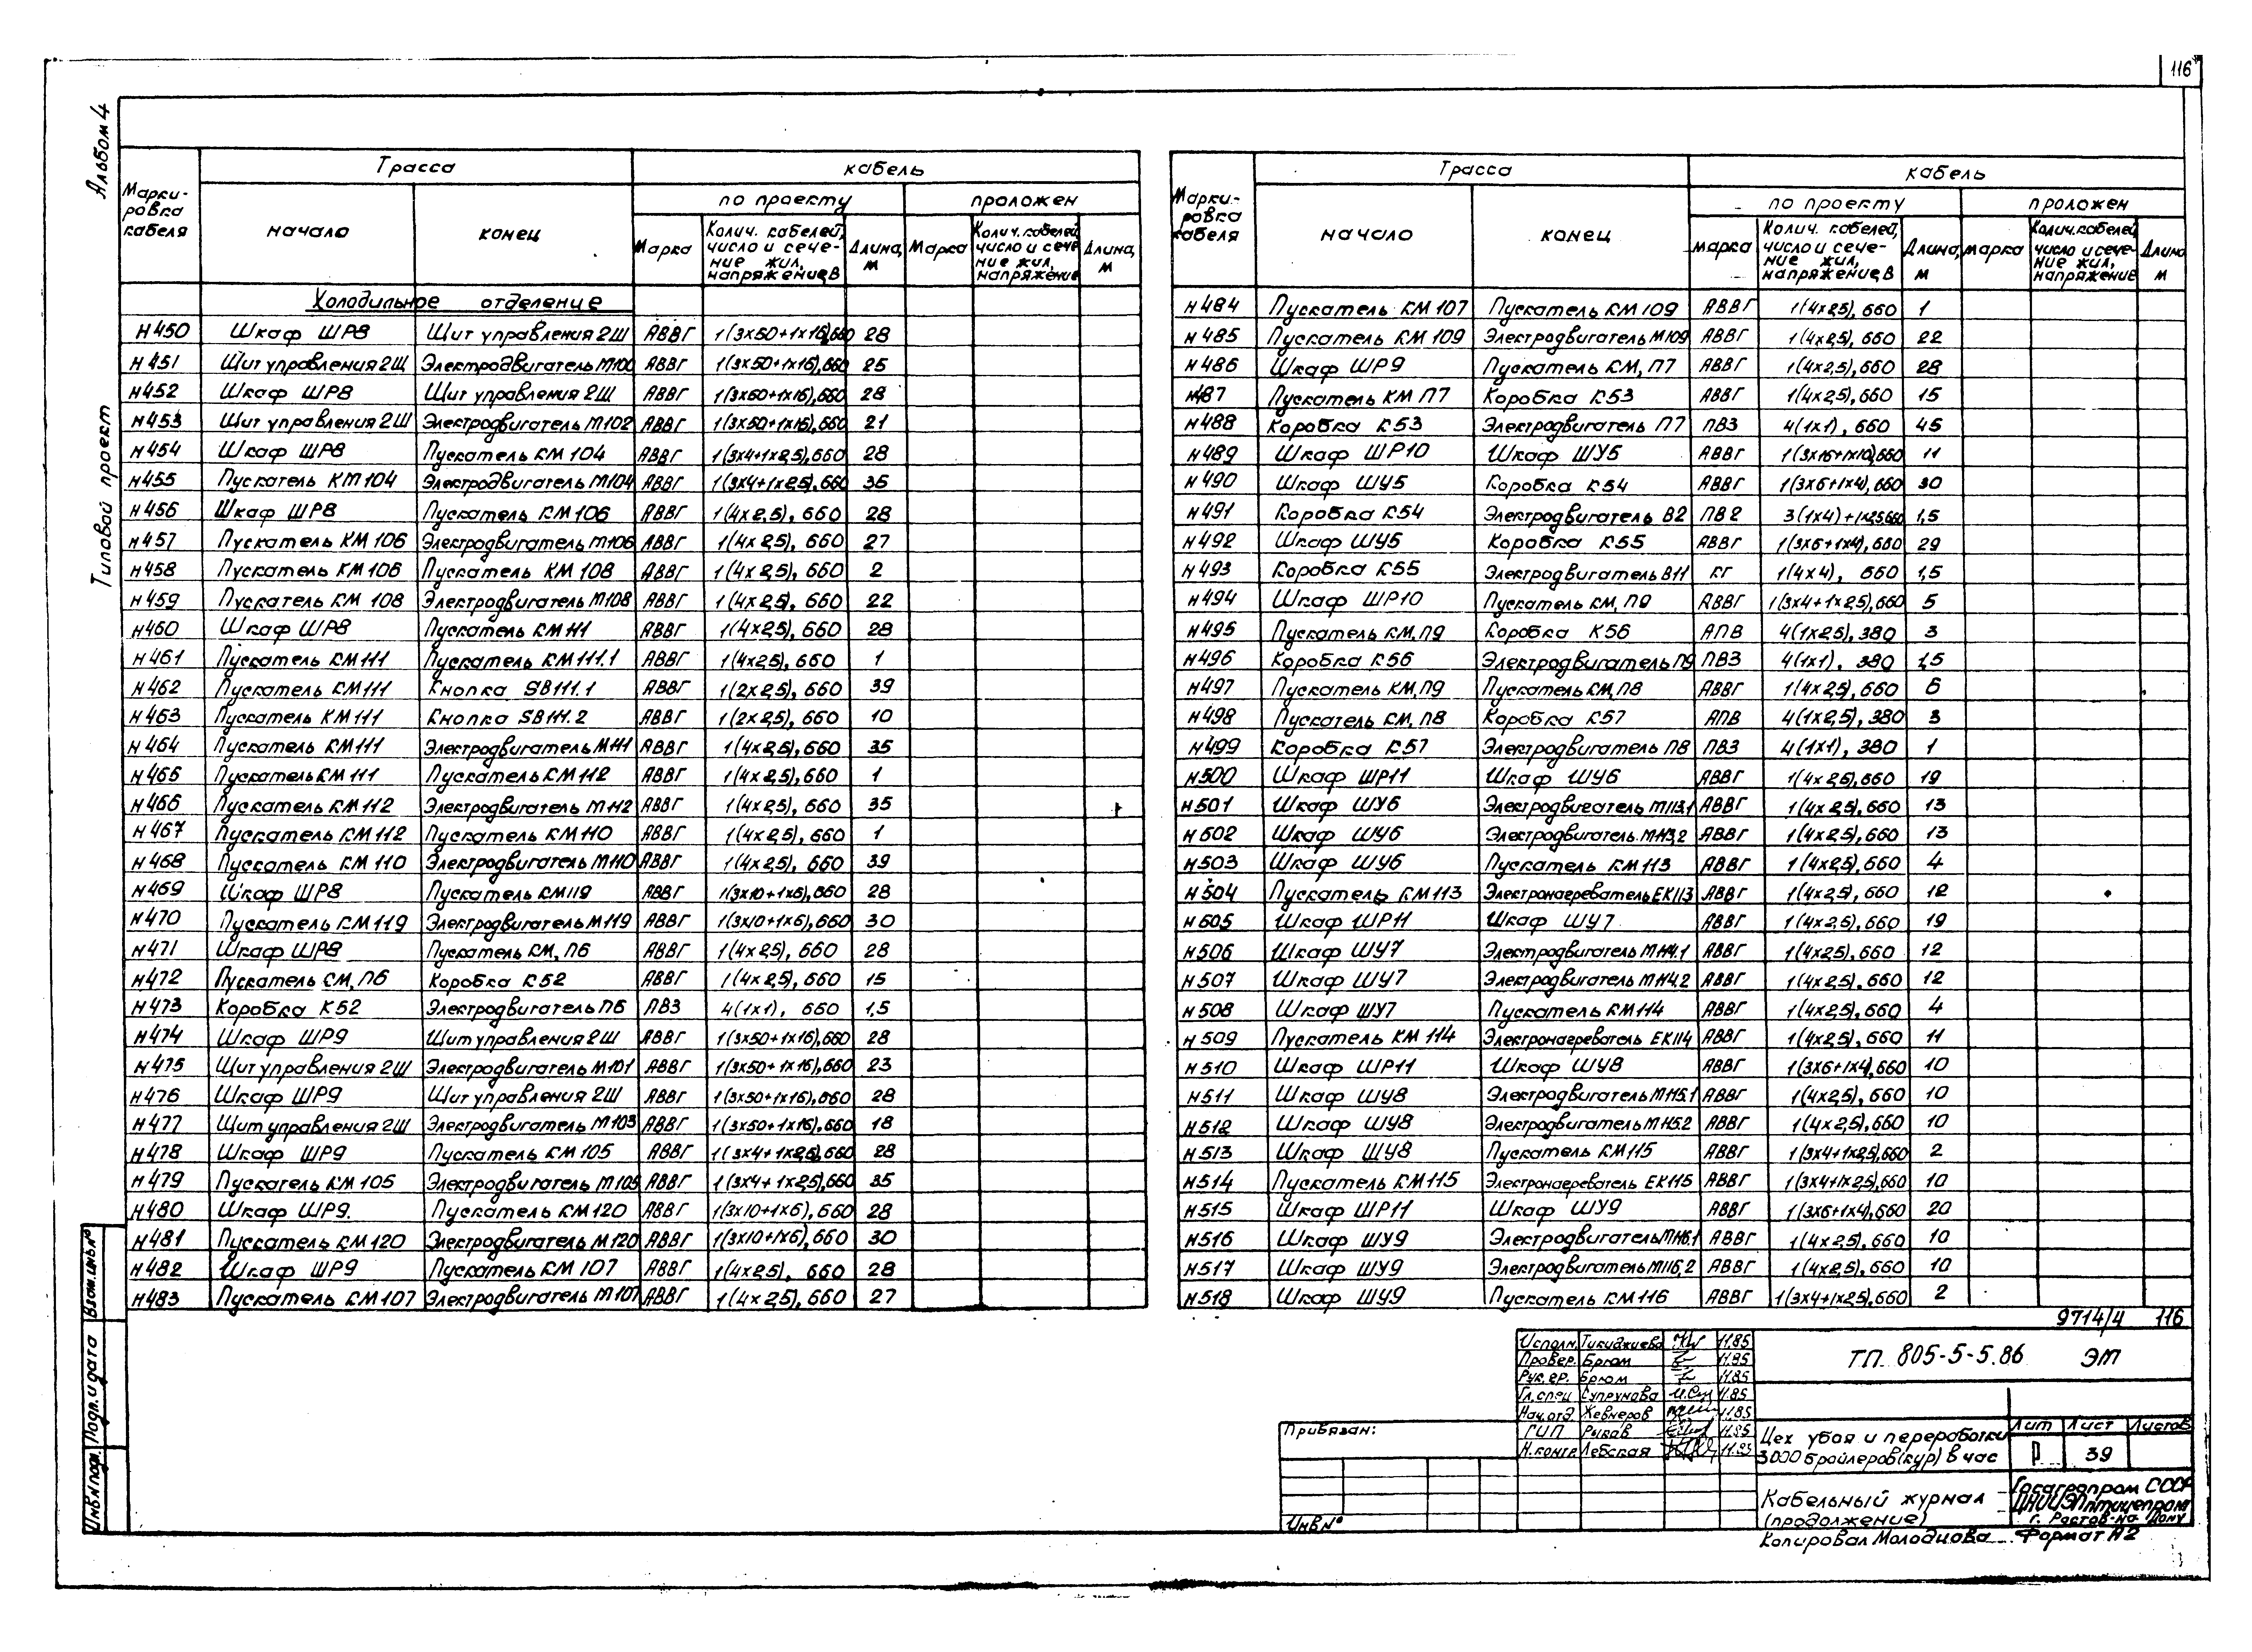 116
Альбом 4
Типовой проект
Марки-ровка кабеля | Трасса | кабель
начало | конец | по проекту | проложен
Марка | Колич. кабелей, число и сече-ние жил, напряжение, В | Длина, м | Марка | Колич. кабелей, число и сече ние жил, напряжение | Длина, м
Холодильное отделение
Н450 Шкаф ШР8 Щит управления 2Щ АВВГ 1(3х50+1х16),660 28
Н451 Щит управления 2Щ Электродвигатель М100 АВВГ 1(3х50+1х16),660 25
Н452 Шкаф ШР8 Щит управления 2Щ АВВГ 1(3х50+1х16),660 28
Н453 Щит управления 2Щ Электродвигатель М102 АВВГ 1(3х50+1х16),660 21
Н454 Шкаф ШР8 Пускатель КМ 104 АВВГ 1(3х4+1х2,5),660 28
Н455 Пускатель КМ 104 Электродвигатель М104 АВВГ 1(3х4+1х2,5),660 35
Н456 Шкаф ШР8 Пускатель КМ 106 АВВГ 1(4х2,5), 660 28
Н457 Пускатель КМ 106 Электродвигатель М106 АВВГ 1(4х2,5), 660 27
Н458 Пускатель КМ 106 Пускатель КМ 108 АВВГ 1(4х2,5), 660 2
Н459 Пускатель КМ 108 Электродвигатель М108 АВВГ 1(4х2,5), 660 22
Н460 Шкаф ШР8 Пускатель КМ 111 АВВГ 1(4х2,5), 660 28
Н461 Пускатель КМ111 Пускатель КМ111.1 АВВГ 1(4х2,5), 660 1
Н462 Пускатель КМ111 Кнопка SB111.1 АВВГ 1(2х2,5), 660 39
Н463 Пускатель КМ111 Кнопка SB111.2 АВВГ 1(2х2,5), 660 10
Н464 Пускатель КМ111 Электродвигатель М111 АВВГ 1(4х2,5), 660 35
Н465 Пускатель КМ 111 Пускатель КМ112 АВВГ 1(4х2,5), 660 1
Н466 Пускатель КМ112 Электродвигатель М112 АВВГ 1(4х2,5), 660 35
Н467 Пускатель КМ112 Пускатель КМ110 АВВГ 1(4х2,5), 660 1
Н468 Пускатель КМ 110 Электродвигатель М110 АВВГ 1(4х2,5), 660 39
Н469 Шкаф ШР8 Пускатель КМ119 АВВГ 1(3х10+1х6),660 28
Н470 Пускатель КМ119 Электродвигатель М119 АВВГ 1(3х10+1х6),660 30
Н471 Шкаф ШР8 Пускатель КМ, П6 АВВГ 1(4х2,5), 660 28
Н472 Пускатель КМ, П6 Коробка К52 АВВГ 1(4х2,5), 660 15
Н473 Коробка К52 Электродвигатель П6 ПВ3 4(1х1), 660 1,5
Н474 Шкаф ШР9 Щит управления 2Щ АВВГ 1(3х50+1х16),660 28
Н475 Щит управления 2Щ Электродвигатель М101 АВВГ 1(3х50+1х16),660 23
Н476 Шкаф ШР9 Щит управления 2Щ АВВГ 1(3х50+1х16),660 28
Н477 Щит управления 2Щ Электродвигатель М103 АВВГ 1(3х50+1х16),660 18
Н478 Шкаф ШР9 Пускатель КМ 105 АВВГ 1(3х4+1х2,5),660 28
Н479 Пускатель КМ 105 Электродвигатель М105 АВВГ 1(3х4+1х2,5),660 35
Н480 Шкаф ШР9. Пускатель КМ120 АВВГ 1(3х10+1х6),660 28
Н481 Пускатель КМ120 Электродвигатель М120 АВВГ 1(3х10+1х6),660 30
Н482 Шкаф ШР9 Пускатель КМ 107 АВВГ 1(4х2,5), 660 28
Н483 Пускатель КМ107 Электродвигатель М107 АВВГ 1(4х2,5), 660 27
Марки-ровка кабеля | Трасса | кабель
начало | конец | по проекту | проложен
марка | Колич. кабелей, число и сече-ние жил, напряжение, В | Длина, м | марка | Колич. кабелей, число и сече-ние жил, напряжение | Длина м
Н484 Пускатель КМ 107 Пускатель КМ 109 АВВГ 1(4х2,5), 660 1
Н485 Пускатель КМ 109 Электродвигатель М109 АВВГ 1(4х2,5), 660 22
Н486 Шкаф ШР9 Пускатель КМ, П7 АВВГ 1(4х2,5),660 28
Н487 Пускатель КМ П7 Коробка К53 АВВГ 1(4х2,5),660 15
Н488 Коробка К53 Электродвигатель П7 ПВ3 4(1х1), 660 45
Н489 Шкаф ШР10 Шкаф ШУ5 АВВГ 1(3х16+1х10),660 11
Н490 Шкаф ШУ5 Коробка К54 АВВГ 1(3х6+1х4),660 30
Н491 Коробка К54 Электродвигатель В2 ПВ2 3(1х4)+1х2,5,660 1,5
Н492 Шкаф ШУ5 Коробка К55 АВВГ 1(3х6+1х4),660 29
Н493 Коробка К55 Электродвигатель В11 КГ 1(4х4), 660 1,5
Н494 Шкаф ШР10 Пускатель КМ, П9 АВВГ 1(3х4+1х2,5),660 5
Н495 Пускатель КМ, П9 Коробка К56 АПВ 4(1х2,5), 380 3
Н496 Коробка К56 Электродвигатель П9 ПВ3 4(1х1), 380 1,5
Н497 Пускатель КМ, П9 Пускатель КМ, П8 АВВГ 1(4х2,5), 660 6
Н498 Пускатель КМ, П8 Коробка К57 АПВ 4(1х2,5), 380 3
Н499 Коробка К57 Электродвигатель П8 ПВ3 4(1х1), 380 1
Н500 Шкаф ШР11 Шкаф ШУ6 АВВГ 1(4х2,5),660 19
Н501 Шкаф ШУ6 Электродвигатель М113,1 АВВГ 1(4х2,5),660 13
Н502 Шкаф ШУ6 Электродвигатель М113,2 АВВГ 1(4х2,5),660 13
Н503 Шкаф ШУ6 Пускатель КМ113 АВВГ 1(4х2,5),660 4
Н504 Пускатель КМ113 Электронагреватель ЕК113 АВВГ 1(4х2,5), 660 12
Н505 Шкаф ШР11 Шкаф ШУ7 АВВГ 1(4х2,5), 660 19
Н506 Шкаф ШУ7 Электродвигатель М114.1 АВВГ 1(4х2,5), 660 12
Н507 Шкаф ШУ7 Электродвигатель М114.2 АВВГ 1(4х2,5), 660 12
Н508 Шкаф ШУ7 Пускатель КМ114 АВВГ 1(4х2,5), 660 4
Н509 Пускатель КМ 114 Электронагреватель ЕК114 АВВГ 1(4х2,5), 660 11
Н510 Шкаф ШР11 Шкаф ШУ8 АВВГ 1(3х6+1х4),660 10
Н511 Шкаф ШУ8 Электродвигатель М115.1 АВВГ 1(4х2,5), 660 10
Н512 Шкаф ШУ8 Электродвигатель М115.2 АВВГ 1(4х2,5),660 10
Н513 Шкаф ШУ8 Пускатель КМ115 АВВГ 1(3х4+1х2,5),660 2
Н514 Пускатель КМ115 Электронагреватель ЕК115 АВВГ 1(3х4+1х2,5),660 10
Н515 Шкаф ШР11 Шкаф ШУ9 АВВГ 1(3х6+1х4),660 20
Н516 Шкаф ШУ9 Электродвигатель М116.1 АВВГ 1(4х2,5), 660 10
Н517 Шкаф ШУ9 Электродвигатель М116,2 АВВГ 1(4х2,5), 660 10
Н518 Шкаф ШУ9 Пускатель КМ116 АВВГ 1(3х4+1х2,5),660 2
9714/4 116
Исполн. Тикиджиева 11.85
Провер. Брюм 11.85
Рук. гр. Брюм 11.85
Гл. спец Супрунова 11.85
Нач. отд. Жевнеров 11.85
ГИП Рыков 11.85
Н. контр. Лебская 11.85
ТП 805-5-5.86 ЭМ
Цех убоя и переработки 3000 бройлеров (кур) в час
Лит Лист Листов
Р 39
Кабельный журнал (продолжение)
Госагропром СССР
ЦНИИЭПптицепром
г. Ростов-на Дону
Копировал Молодцова Формат А2
Привязан:
Инв №
Взам. инв. №
Подп. и дата
Инв № подл.